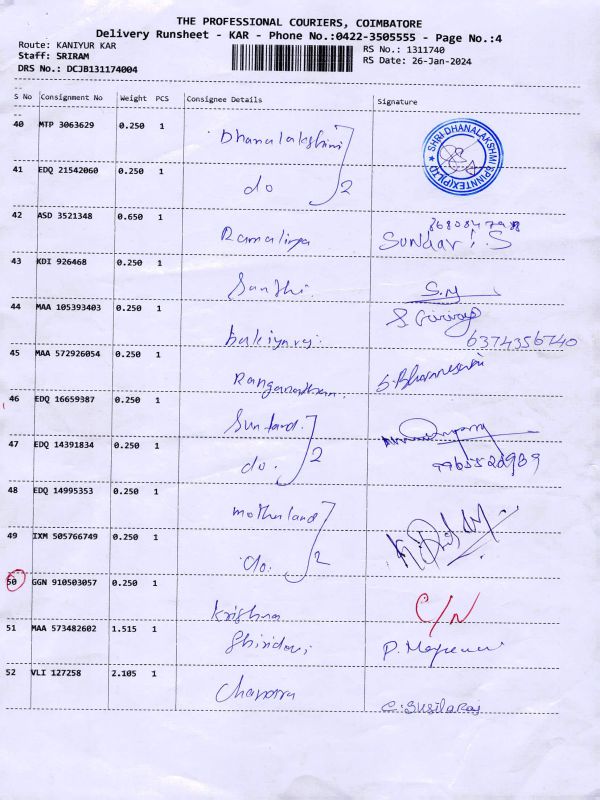 THE PROFESSIONAL COURIERS, COIMBATORE
Delivery Runsheet - KAR - Phone No.:0422-3505555 - Page No.:4
Route: KANIYUR KAR
RS No.: 1311740
Staff: SRIRAM
RS Date: 26-Jan-2024
DRS No.: DCJB131174004
S No Consignment No Weight PCS Consignee Details Signature
40 MTP 3063629 0.250 1 Dhanalakshmi
SHRI DHANALAKSHMI SPINNTEX(P)LTD
41 EDQ 21542060 0.250 1 do 2
42 ASD 3521348 0.650 1 Ramalinga
Sundar . S
43 KDI 926468 0.250 1 Santhi.
S.M
44 MAA 105393403 0.250 1 bakiyaraj.
6374356740
45 MAA 572926054 0.250 1 Ranganathan.
46 EDQ 16659387 0.250 1 Sunland.
47 EDQ 14391834 0.250 1 do. 2
9965522989
48 EDQ 14995353 0.250 1 motherland
49 IXM 505766749 0.250 1 do. 2
50 GGN 910503057 0.250 1 Krishna
C/N
51 MAA 573482602 1.515 1
52 VLI 127258 2.105 1
C. Susilaraj